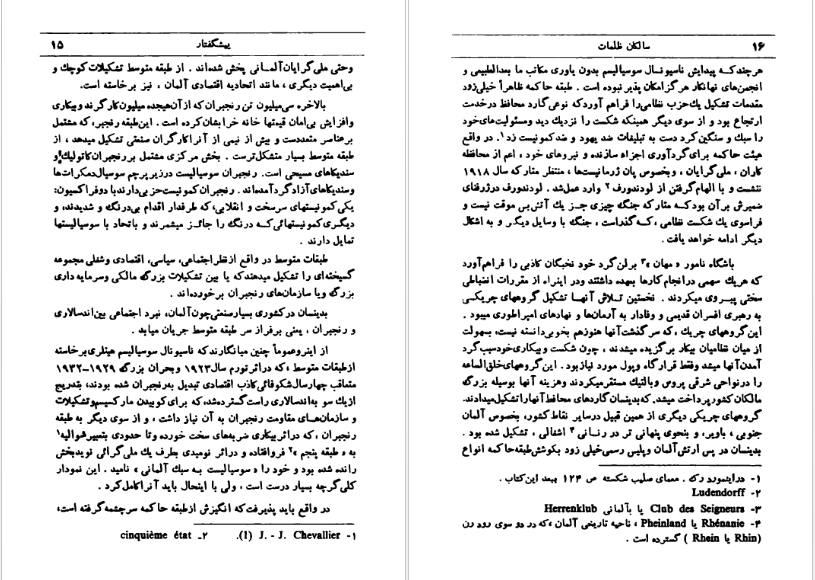 پیشگفتار ۱۵
وحتی ملی گرایان آلمانی پخش شده‌اند . از طبقه متوسط تشکیلات کوچك و
بی‌اهمیت دیگری ، مانند اتحادیه اقتصادی آلمان ، نیز برخاسته است.
بالاخره سی‌میلیون تن رنجبران که از آن هیجده میلیون کارگرند و بیکاری
وافزایش بی‌امان قیمتها خانه خرابشان کرده است . این طبقه رنجبر، که مشتمل
برعناصر متعددست و بیش از نیمی از آنرا کارگران صنعتی تشکیل میدهد ، از
طبقه متوسط بسیار متشکل‌ترست . بخش مرکزی مشتمل بر رنجبران کاتولیك و
سندیکاهای مسیحی است. رنجبران سوسیالیست درزیر پرچم سوسیال دمکرات‌ها
وسندیکاهای آزاد گرد آمده‌اند. رنجبران کمونیست حزبی دارند با دو فراکسیون:
یکی کمونیستهای سرسخت و انقلابی، که طرفدار اقدام بی‌درنگ و شدیدند، و
دیگری کمونیستهائی که درنگ را جائز میشمرند و باتحاد با سوسیالیستها
تمایل دارند .
طبقات متوسط در واقع از نظر اجتماعی، سیاسی، اقتصادی وشغلی مجموعه
گسیخته‌ای را تشکیل میدهند که یا بین تشکیلات بزرگ مالکی وسرمایه داری
بزرگ ویا سازمان‌های رنجبران برخورده‌اند .
بدینسان در کشوری بسیار صنعتی چون آلمان، نبرد اجتماعی بین اندسالاری
و رنجبران ، یعنی برفراز سر طبقه متوسط جریان مییابد .
از اینرو عموماً چنین میانگارند که ناسیونال سوسیالیسم هیتلری برخاسته
از طبقات متوسط ، که در اثر تورم سال ۱۹۲۳ و بحران بزرگ ۱۹۲۹-۱۹۳۲
متعاقب چهار سال شکوفائی کاذب اقتصادی تبدیل به رنجبران شده بودند، بتدریج
از یك سو به اندسالاری راست گرده شد، که برای کوبیدن مارکسیسم و تشکیلات
و سازمان‌های مقاومت رنجبران به آن نیاز داشت ، و از سوی دیگر به طبقه
رنجبران ، که در اثر بیکاری ضربه‌های سخت خورده وتا حدودی بتعبیر شوالیه۱
به « طبقه پنجم »۲ فروافتاده و در اثر نومیدی بطرف یك ملی گرائی نویدبخش
رانده شده بود و خود را « سوسیالیست به سبك آلمانی » نامید . این نمودار
کلی گرچه بسیار درست است ، ولی با اینحال باید آنرا کامل کرد .
در واقع باید پذیرفت که انگیزش از طبقه حاکمه سرچشمه گرفته است،
۱- J. - J. Chevallier (1). ۲- cinquième état
۱۶ سالکان ظلمات
هرچند که پیدایش ناسیونال سوسیالیسم بدون یاوری مکاتب ما بعدالطبیعی و
انجمن‌های نهانکار هرگز امکان پذیر نبوده است . طبقه حاکمه ظاهراً خیلی زود
مقدمات تشکیل یك حزب نظامی را فراهم آورد که نوعی گارد محافظ در خدمت
ارتجاع بود و از سوی دیگر همینکه شکست را نزدیك دید ومسئولیت‌های خود
را سبك و سنگین کرد دست به تبلیغات ضد یهود و ضد کمونیست زد۱. در واقع
هیئت حاکمه برای گردآوری اجزاء سازنده و نیروهای خود ، اعم از محافظه
کاران ، ملی گرایان ، وبخصوص پان ژرمانیست‌ها ، منتظر متارکه سال ۱۹۱۸
ننشست و با الهام گرفتن از لودندورف۲ وارد عمل شد. لودندورف در ژرفای
ضمیرش بر آن بود که متارکه جنگ چیزی جز یك آتش بس موقت نیست و
فراسوی یك شکست نظامی ، که گذراست ، جنگ با وسایل دیگر و به اشکال
دیگر ادامه خواهد یافت .
باشگاه نامور « مهان »۳ برلن گرد خود نخبگان کاذبی را فراهم آورد
که هریك سهمی در انجام کارها بعهده داشتند ودر اینراه از مقررات انضباطی
سختی پیروی میکردند . نخستین تلاش آنها تشکیل گروههای چریکی
به رهبری افسران قدیمی و وفادار به آرمان‌ها و نهادهای امپراطوری میبود .
این گروههای چریك ، که سرگذشت آنها هنوز هم بخوبی دانسته نیست، بسهولت
از میان نظامیان بیکار برگزیده میشدند ، چون شکست وبیکاری خود سبب گرد
آمدن آنها میشد وفقط قرارگاه وپول مورد نیاز بود . این گروههای خلق‌الساعه
را در نواحی شرقی پروس وبالتیك مستقر میکردند وهزینه آنها بوسیله بزرگ
مالکان کشور پرداخت میشد. که بدینسان گاردهای محافظ آنها را تشکیل میدادند.
گروههای چریکی دیگری از همین قبیل در سایر نقاط کشور، بخصوص آلمان
جنوبی ، باویر، و بنحوی پنهانی تر در رنانی ۴ اشغالی ، تشکیل شده بود .
بدینسان در پس ارتش آلمان و پلیس رسمی خیلی زود بکوشش طبقه حاکمه انواع
۱- در اینمورد رك . معمای صلیب شکسته ص ۱۲۴ ببعد این کتاب .
۲- Ludendorff
۳- Club des Seigneurs یا بآلمانی Herrenklub
۴- Rhénanie یا Pheinland ، ناحیه تاریخی آلمان ،که در دو سوی رود رن
(Rhin یا Rhein ) گسترده است .